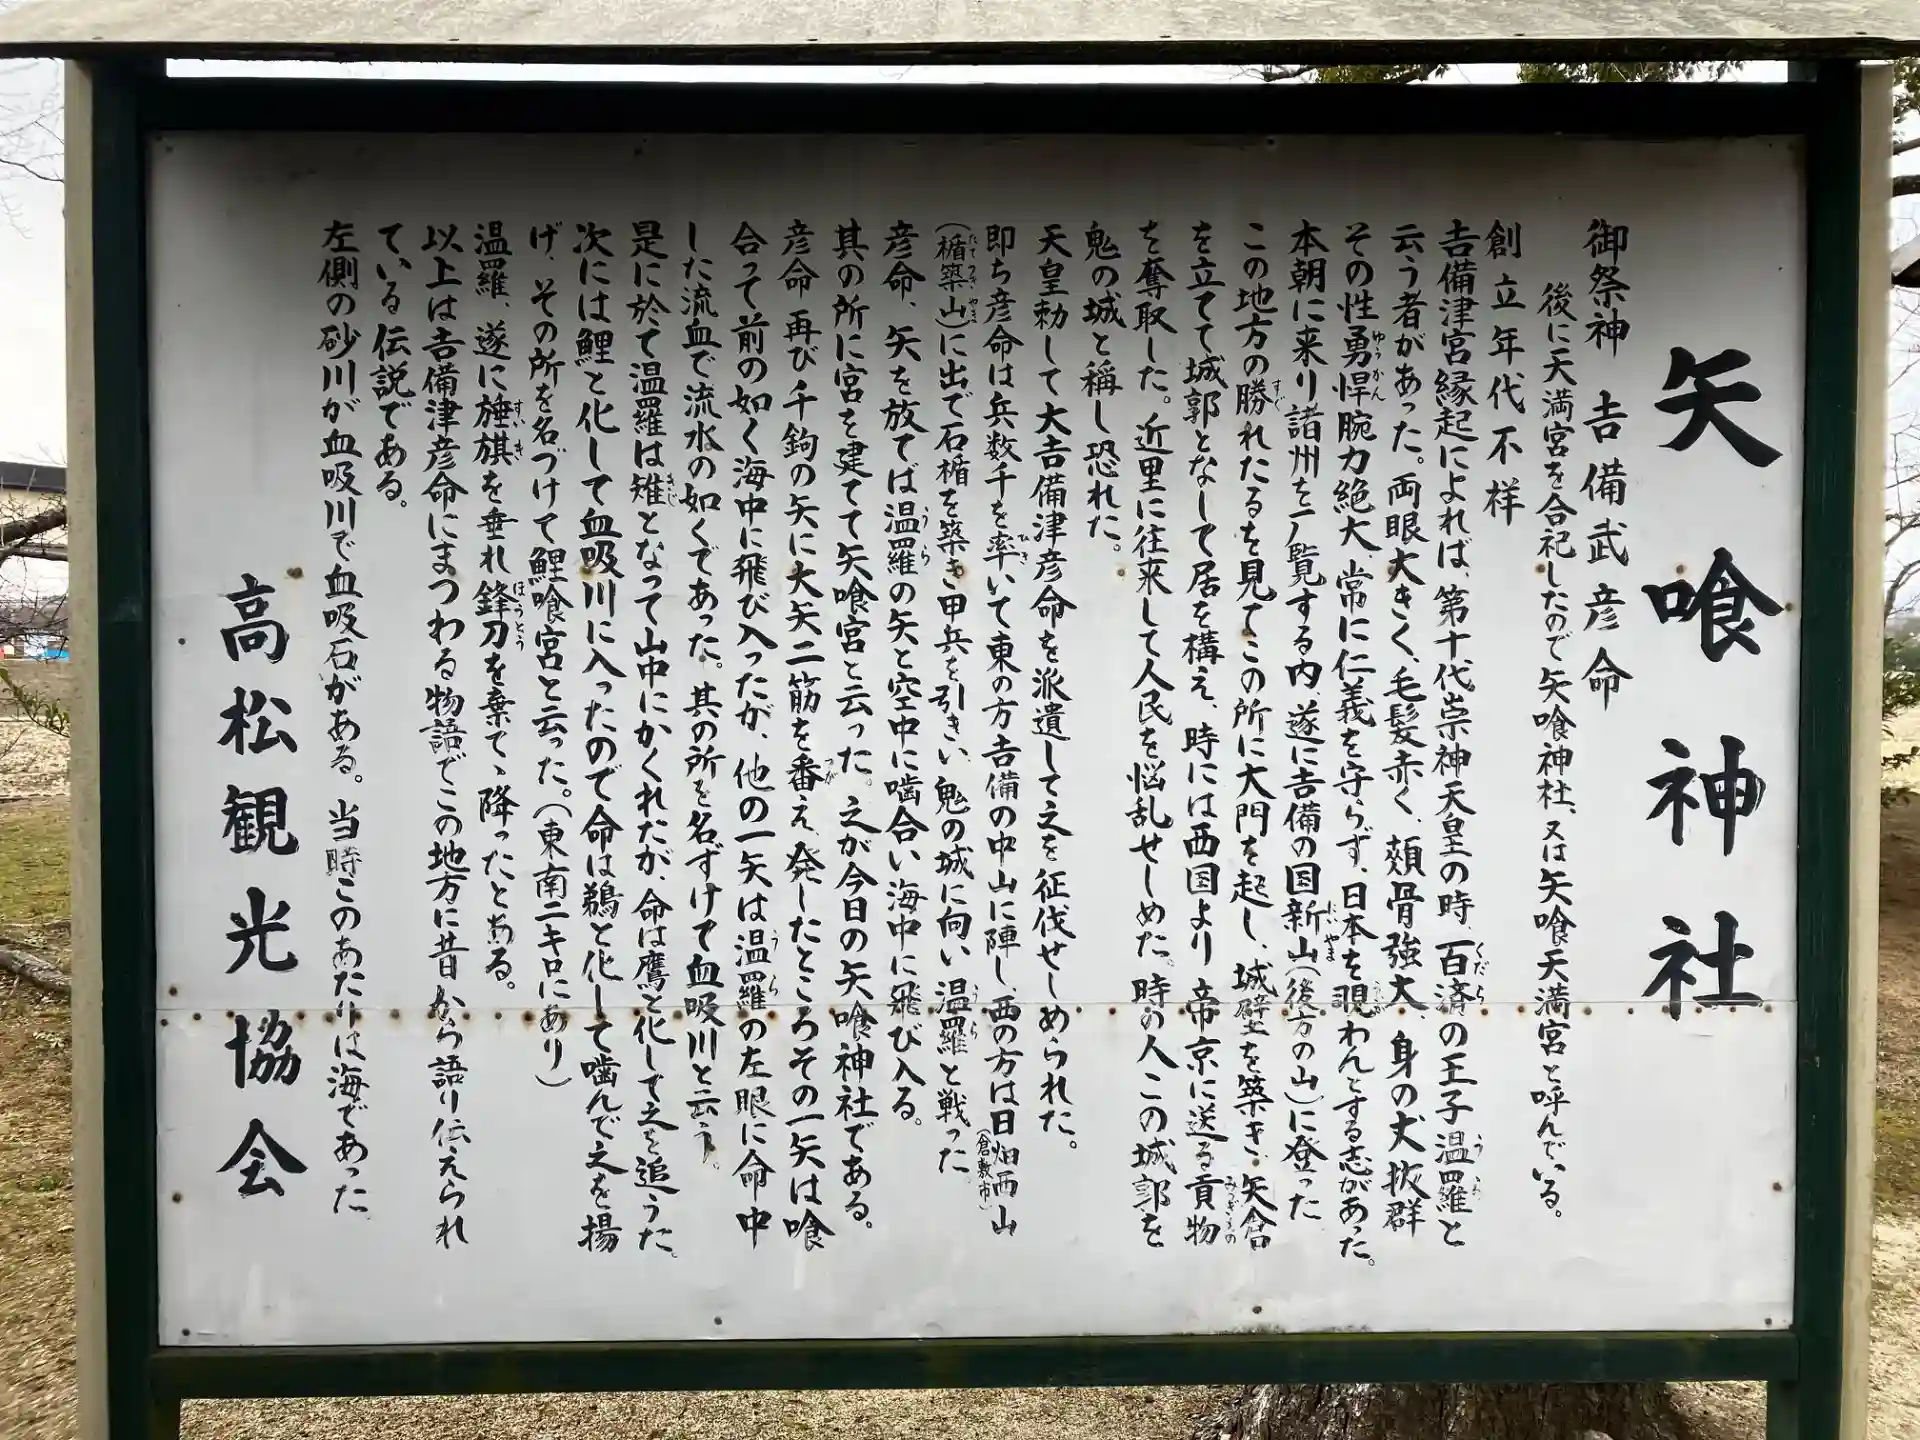 矢喰神社
御祭神 吉備武彦命
後に天満宮を合祀したので矢喰神社、又は矢喰天満宮と呼んでいる。
創立年代不祥
吉備津宮縁起によれば、第十代崇神天皇の時、百済の王子温羅と
云う者があった。両眼大きく、毛髪赤く、頬骨強大、身の丈抜群
その性勇悍腕力絶大、常に仁義を守らず、日本を覗わんとする志があった。
本朝に来り諸州を一覧する内、遂に吉備の国新山(後方の山)に登った
この地方の勝れたるを見てこの所に大門を起し、城壁を築き、矢倉
を立てて城郭となして居を構え、時には西国より帝京に送る貢物
を奪取した。近里に往来して人民を悩乱せしめた。時の人この城郭を
鬼の城と稱し恐れた。
天皇勅して大吉備津彦命を派遣して之を征伐せしめられた。
即ち彦命は兵数千を率いて東の方吉備の中山に陣し、西の方は日畑西山(倉敷市)
(楯築山)に出で石楯を築き甲兵を引きい、鬼の城に向い温羅と戦った。
彦命、矢を放てば温羅の矢と空中に噛合い海中に飛び入る。
其の所に宮を建てて矢喰宮と云った。之が今日の矢喰神社である。
彦命再び千鈎の矢に大矢二筋を番え、発したところその一矢は喰
合って前の如く海中に飛び入ったが、他の一矢は温羅の左眼に命中
した流血で流水の如くであった。其の所を名ずけて血吸川と云う。
是に於て温羅は雉となって山中にかくれたが、命は鷹と化して之を追うた。
次には鯉と化して血吸川に入ったので命は鵜と化して噛んで之を揚
げ、その所を名づけて鯉喰宮と云った。(東南二キロにあり)
温羅、遂に𣄃旗を垂れ鋒刀を棄て、降ったとある。
以上は吉備津彦命にまつわる物語でこの地方に昔から語り伝えられ
ている伝説である。
左側の砂川が血吸川で血吸石がある。当時このあたりは海であった。
高松観光協会